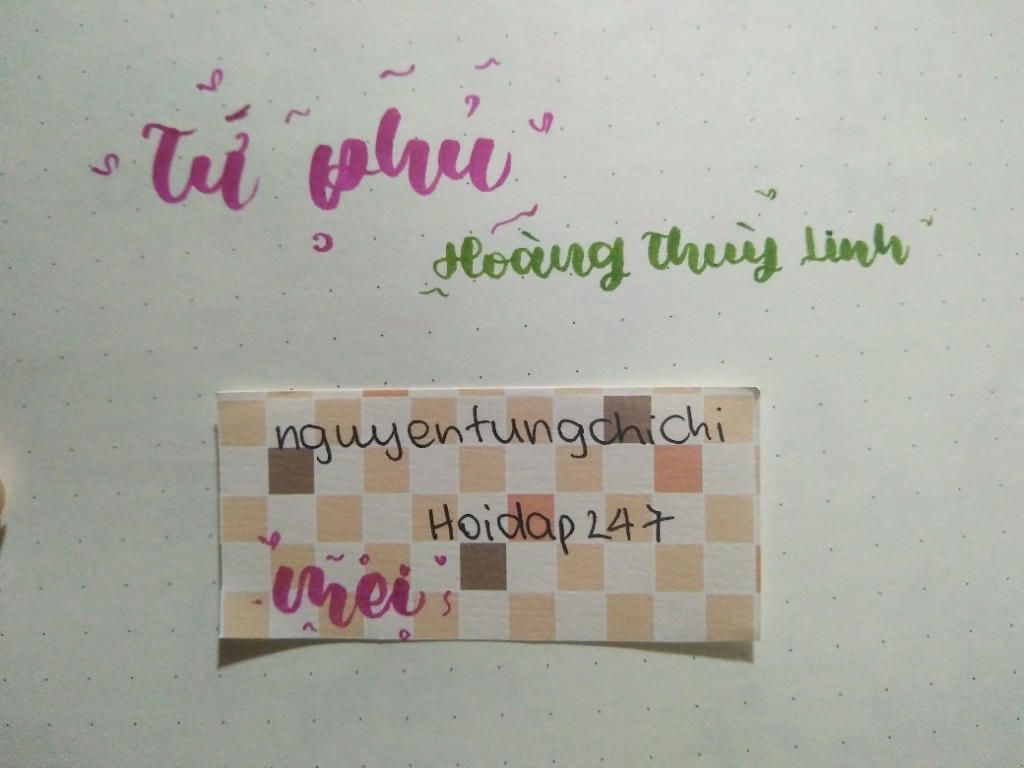 Tứ phủ
Hoàng Thuỳ Linh
nguyentungchichi
Hoidap247
mei